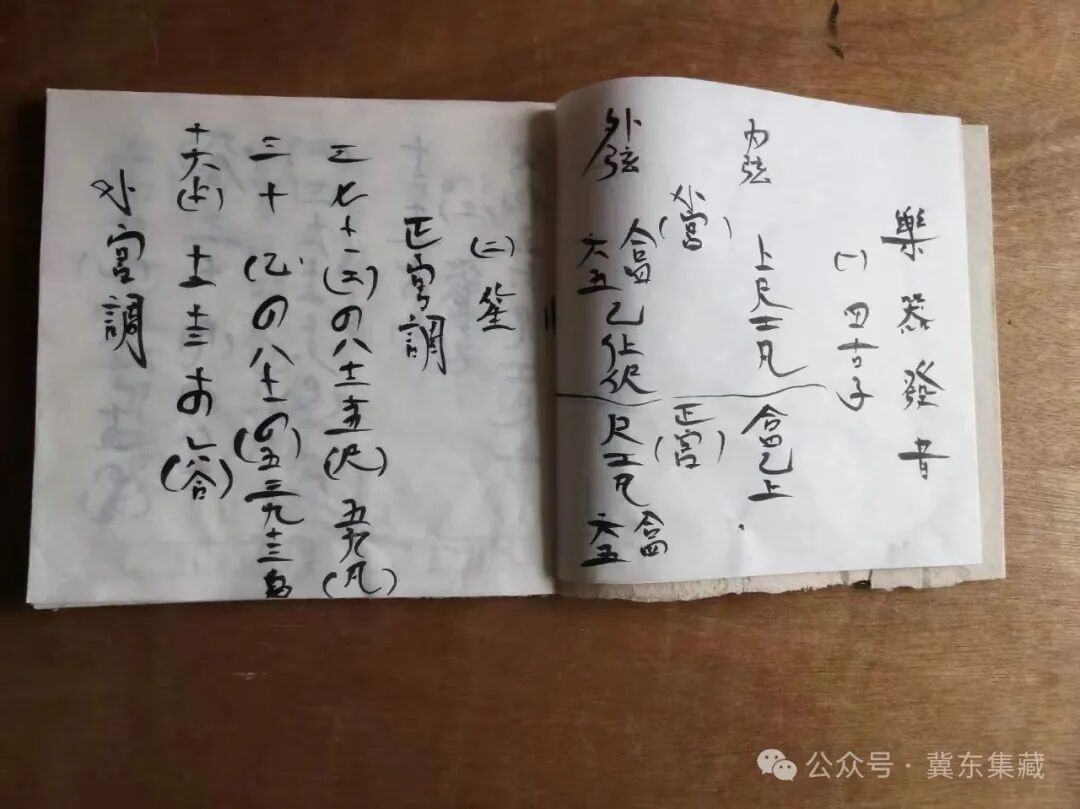 樂器發音
(一) 四古子
内弦 上尺工凡 合四乙上
(外宮) (正宮)
外弦 合四 六五 乙仩伬 尺工凡 合四 六五
(二) 笙
正宮調
三七十一(工)の八十二 (尺) 五九(凡)
三十(乙)の八十一の(五)三九十三
十六(上)
外宮調
公众号·冀东集藏